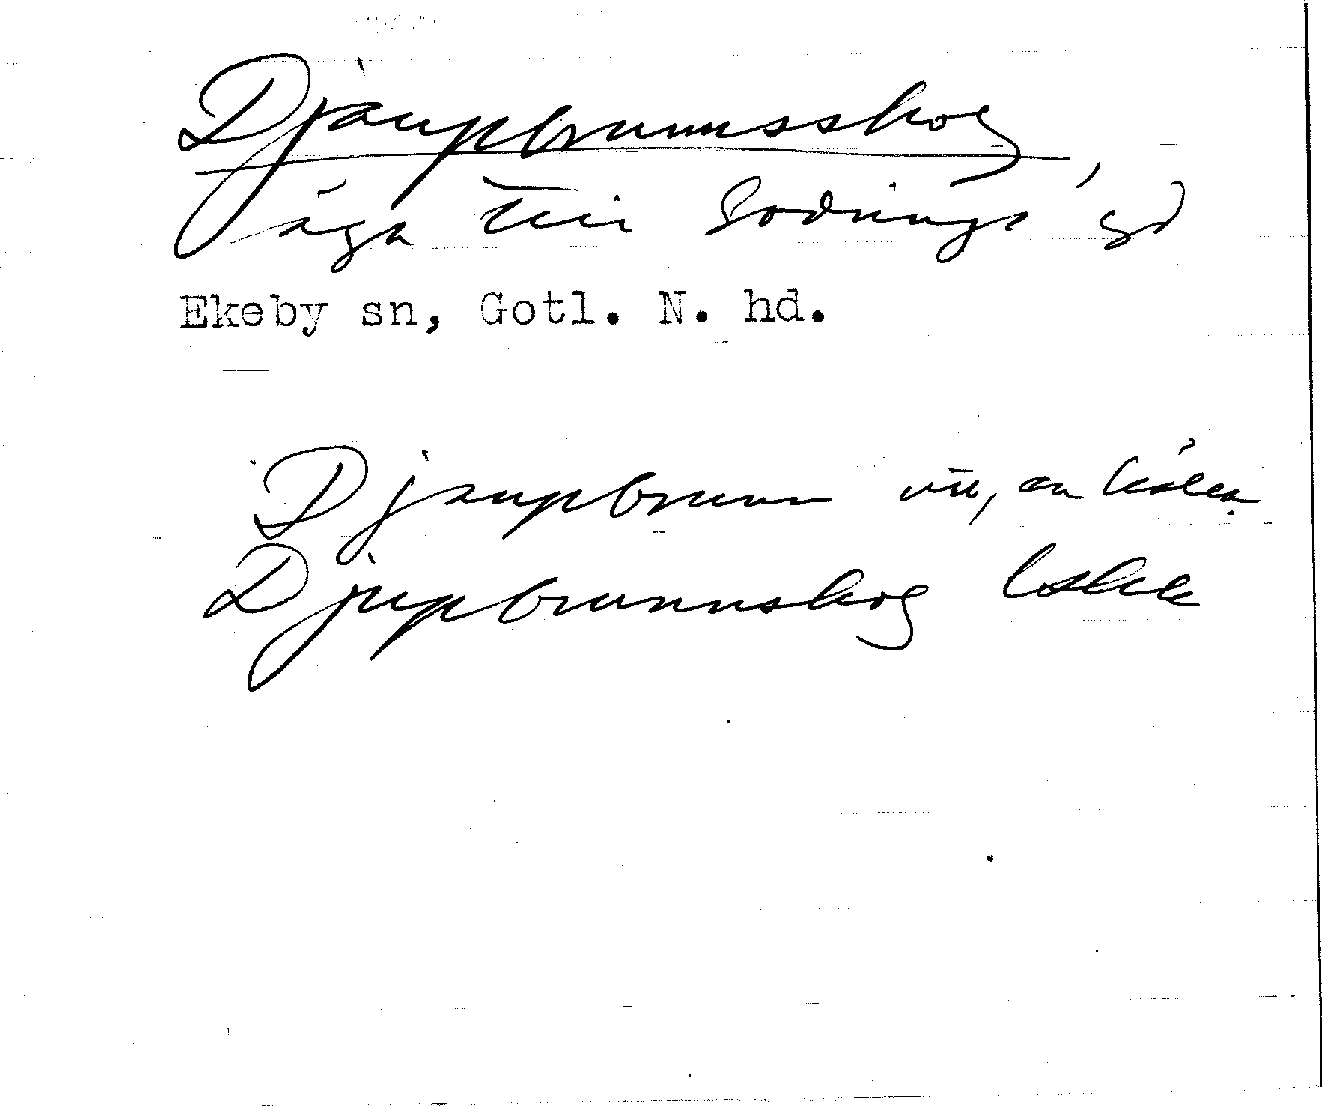 Djaupbrunnsskog,
äga till Sodrings gd
Ekeby sn, Gotl. N. hd.
Djaupbrunn vil, en källa
Djupbrunnskog